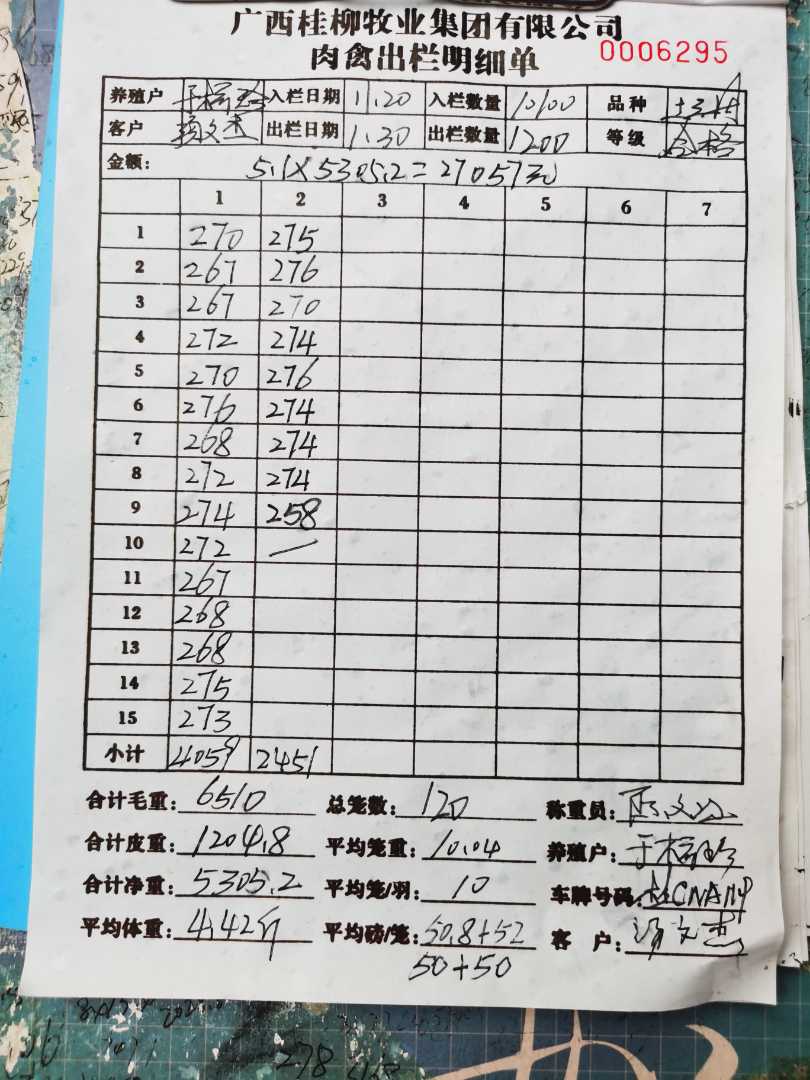 广西桂柳牧业集团有限公司
肉禽出栏明细单 0006295
养殖户 入栏日期 11.20 入栏数量 10100 品种
客户 文杰 出栏日期 1.30 出栏数量 1200 等级 合格
金额: 5.1×5305.2=27057元
1 2 3 4 5 6 7
1 270 275
2 267 276
3 267 270
4 272 274
5 270 276
6 276 274
7 268 274
8 272 274
9 274 258
10 272 —
11 267
12 268
13 268
14 275
15 273
小计 4059 2451
合计毛重: 6510 总笼数: 120 称重员:
合计皮重: 1204.8 平均笼重: 10.04 养殖户:
合计净重: 5305.2 平均笼/羽: 10 车牌号码:
平均体重: 4.42斤 平均磅/笼: 50.8+52 客户: 文杰
50+50
278